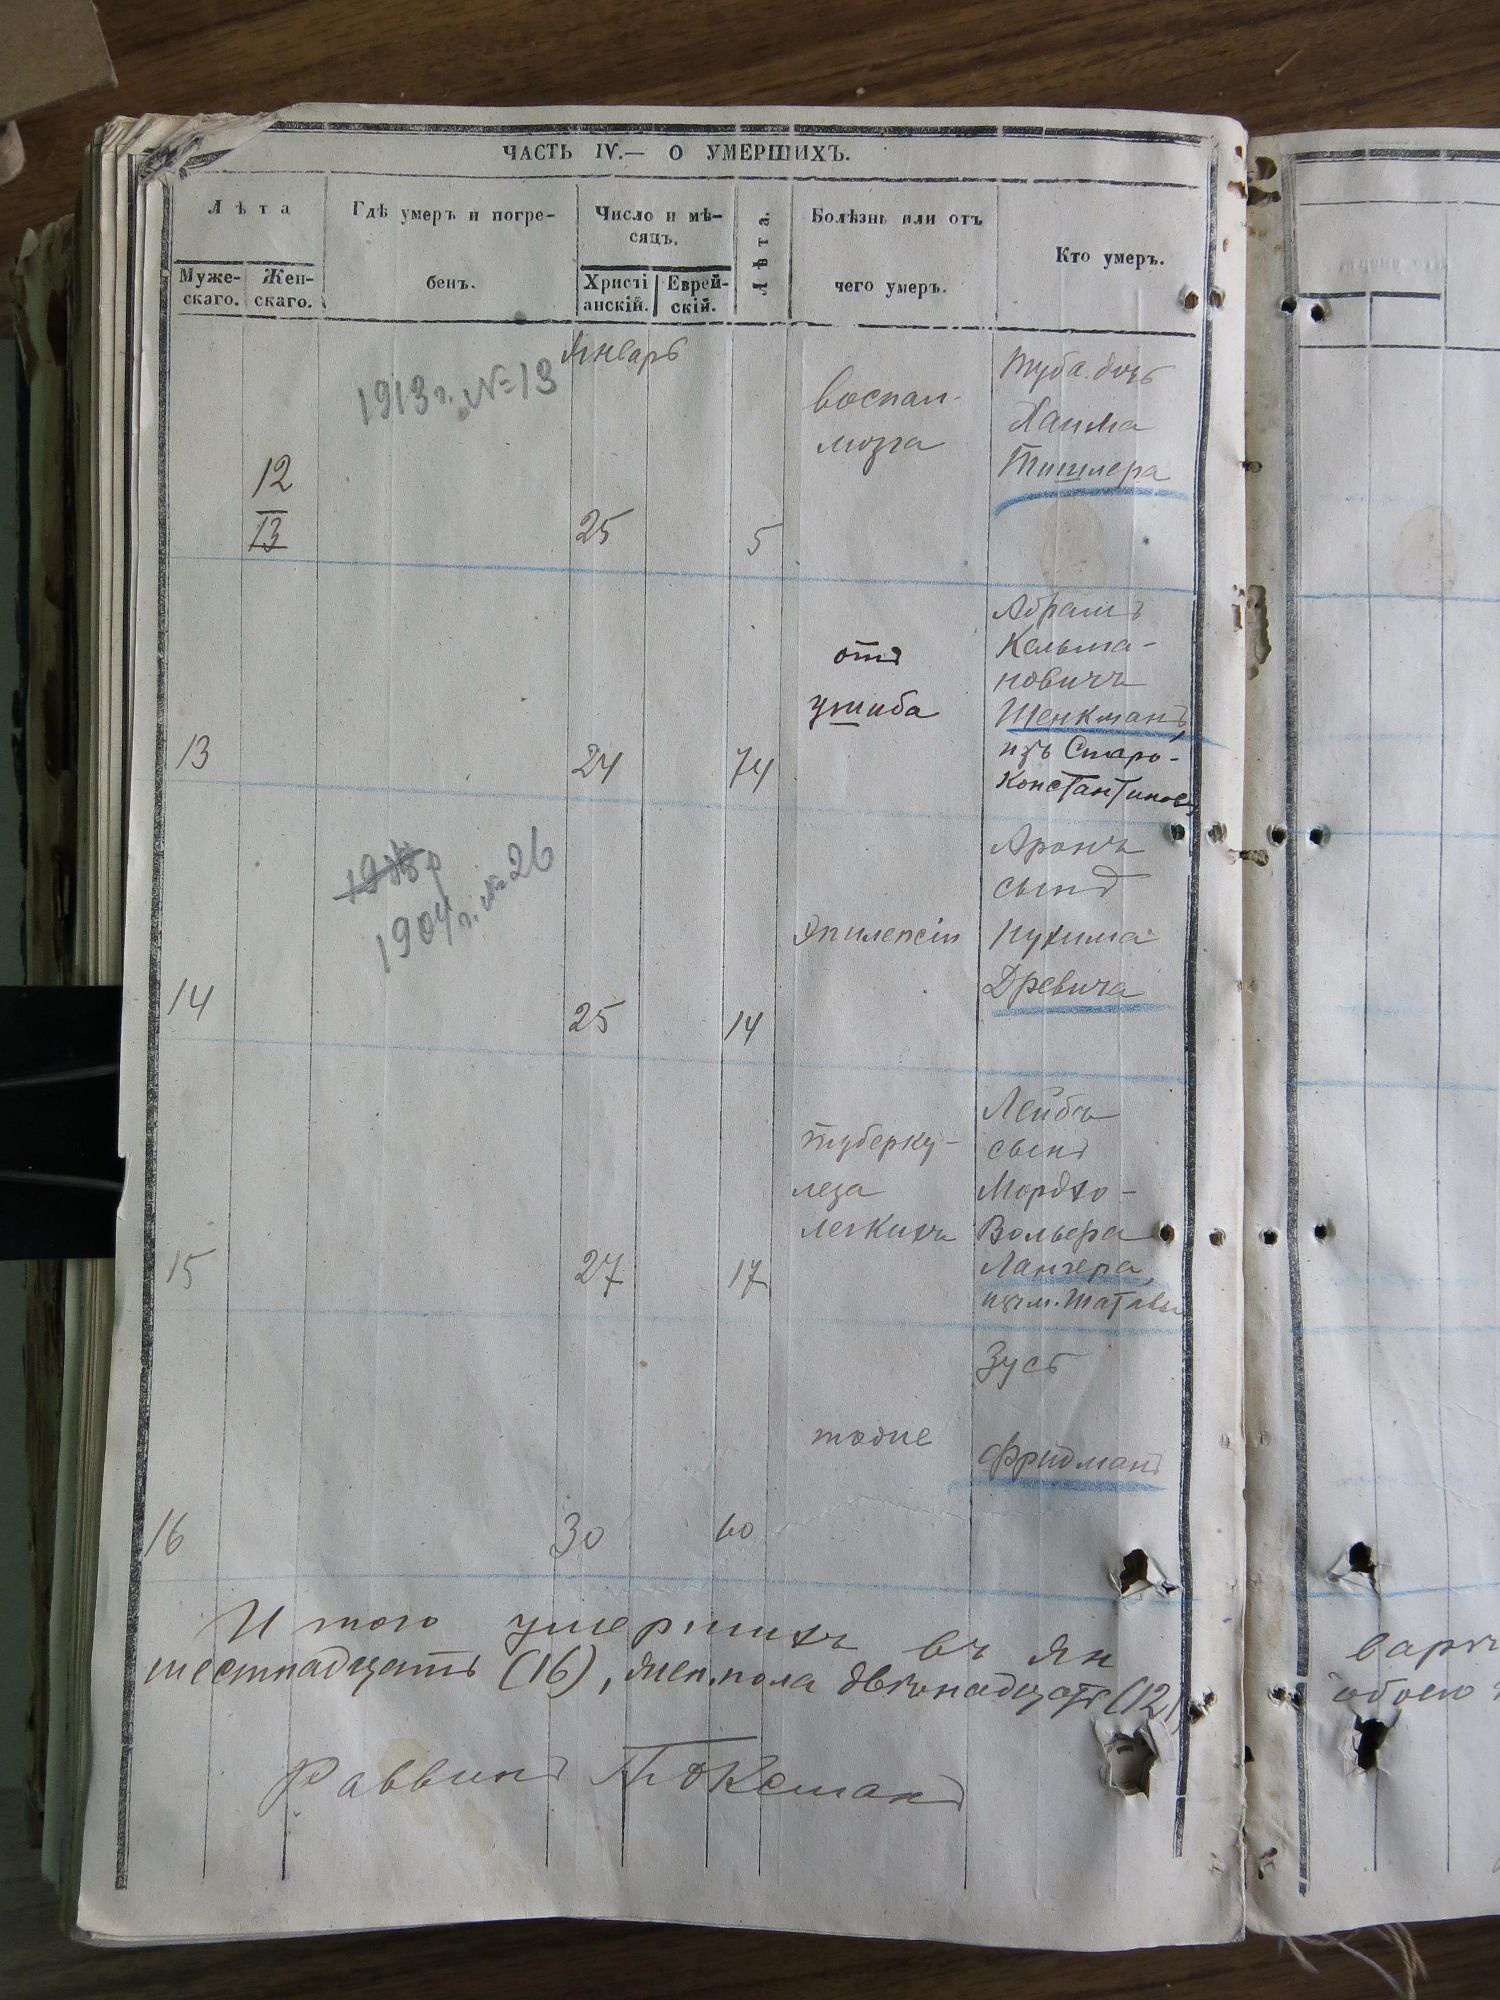 ЧАСТЬ IV.— О УМЕРШИХЪ.
Лѣта
Мужескаго.
Женскаго.
Гдѣ умеръ и погребенъ.
Число и мѣсяцъ.
Христіанскій.
Еврейскій.
Лѣта.
Болѣзнь или отъ
чего умеръ.
Кто умеръ.
Январь
1913 г. №13
12
13
25
5
воспал.
мозга
Туба дочь
Хаима
Тишлера
13
24
74
отъ
ушиба
Абрамъ
Кельма-
новичъ
Шенкманъ,
изъ Старо-
Константинов.
1904 г. №26
14
25
14
эпилепсіи
Аронъ
сынъ
Нухима
Древича
15
27
17
туберку-
леза
легкихъ
Лейбъ
сынъ
Мордхо-
Вольфа
Лангера,
изъ м. Шатавы
16
30
60
тоже
Зусь
Фридманъ
Итого умершихъ въ Ян варѣ
шестнадцать (16), жен. пола двѣнадцать (12) обоего
Раввинъ